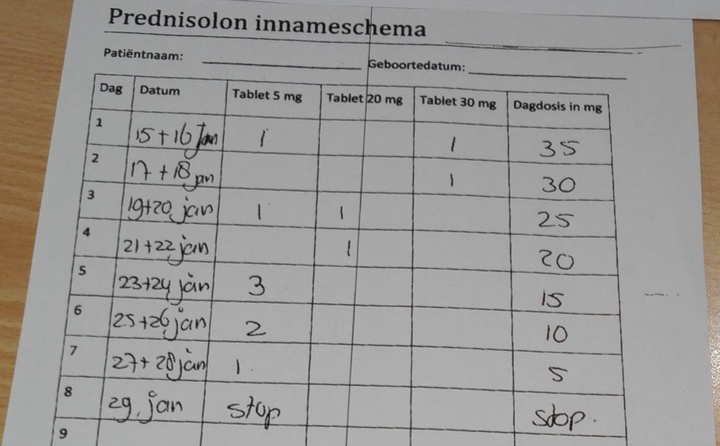 Prednisolon innameschema
Patiëntnaam: Geboortedatum:
Dag Datum Tablet 5 mg Tablet 20 mg Tablet 30 mg Dagdosis in mg
1 15+16 Jan 1 1 35
2 17+18 jan 1 30
3 19+20, jan 1 1 25
4 21+22, jan 1 20
5 23+24 jan 3 15
6 25+26, jan 2 10
7 27+28 jan 1. 5
8 29, jan stop stop.
9